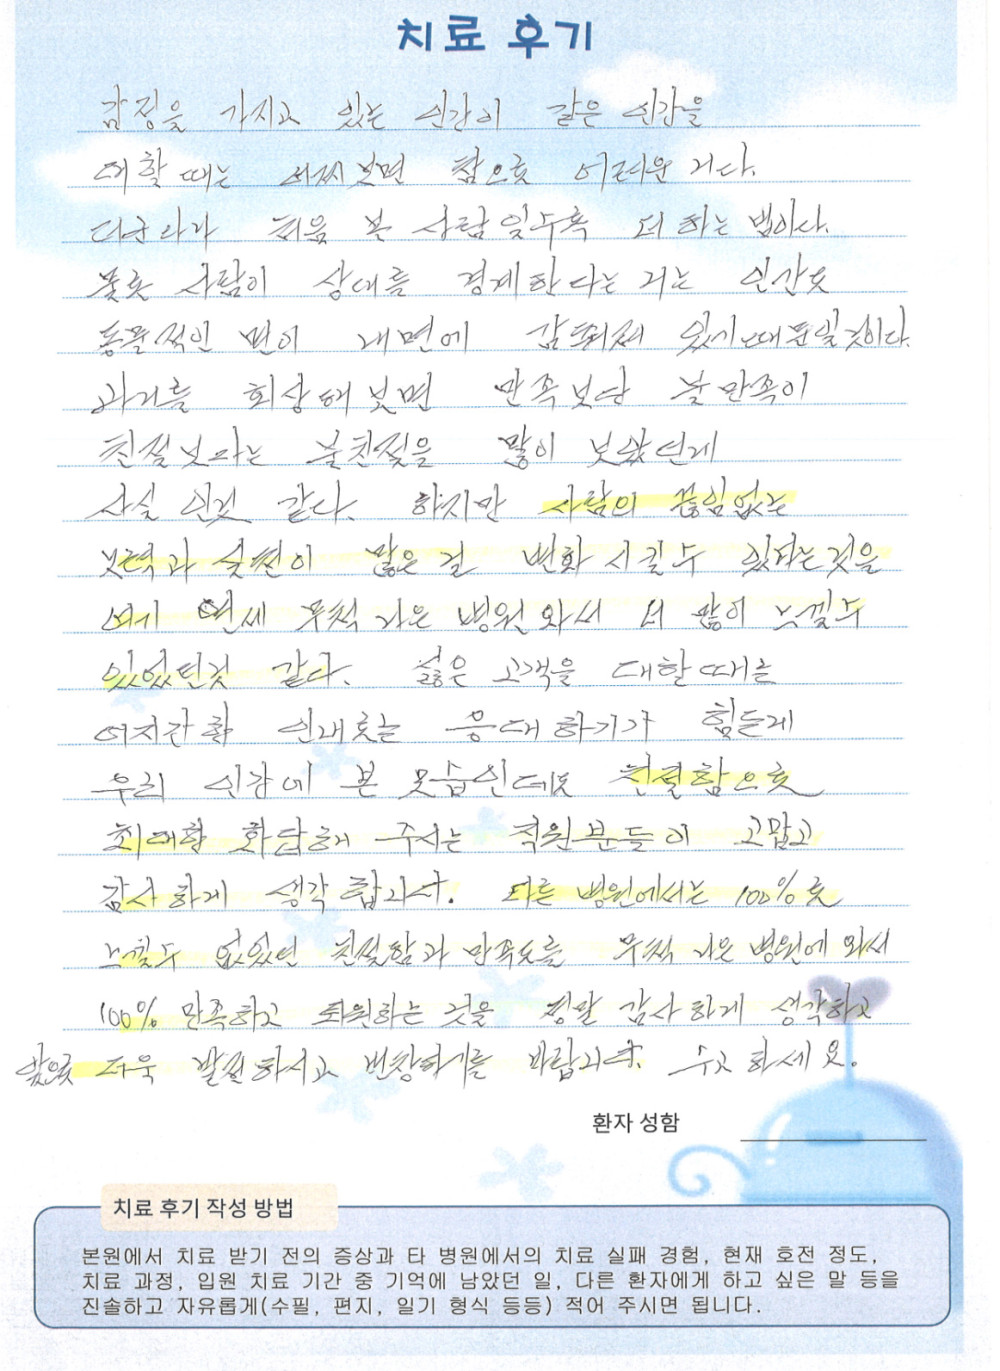 치료 후기
감정을 가지고 있는 인간이 같은 인간을
대할 때는 어찌보면 참으로 어려운 거다.
다구나가 처음 본 사람일수록 더 하는 법이다.
못롯 사람이 상대를 경계한다는 거는 인간도
동물적인 면이 내면에 감춰져 있기 때문일 것이다.
과거를 회상해 보면 만족보단 불만족이
친절보다는 불친절을 많이 보았던게
사실 인것 같다. 하지만 사람의 끊임없는
노력과 실천이 많은 걸 변화 시킬수 있다는것을
여기 연세 무척 나은 병원 와서 더 많이 느낄수
있었던것 같다. 싫은 고객을 대할때는
어지간한 인내로는 응대하기가 힘든게
우리 인간에 본 모습인데도 친절함으로
최대한 화답해 주시는 직원분들이 고맙고
감사하게 생각 합니다. 다른 병원에서는 100%로
느낄수 없었던 친절함과 만족도를 무척 나은 병원에 와서
100% 만족하고 퇴원하는 것을 정말 감사하게 생각하고
앞으로 더욱 발전하시고 번창하기를 바랍니다. 수고 하세요.
환자 성함
치료 후기 작성 방법
본원에서 치료 받기 전의 증상과 타 병원에서의 치료 실패 경험, 현재 호전 정도,
치료 과정, 입원 치료 기간 중 기억에 남았던 일, 다른 환자에게 하고 싶은 말 등을
진솔하고 자유롭게(수필, 편지, 일기 형식 등등) 적어 주시면 됩니다.